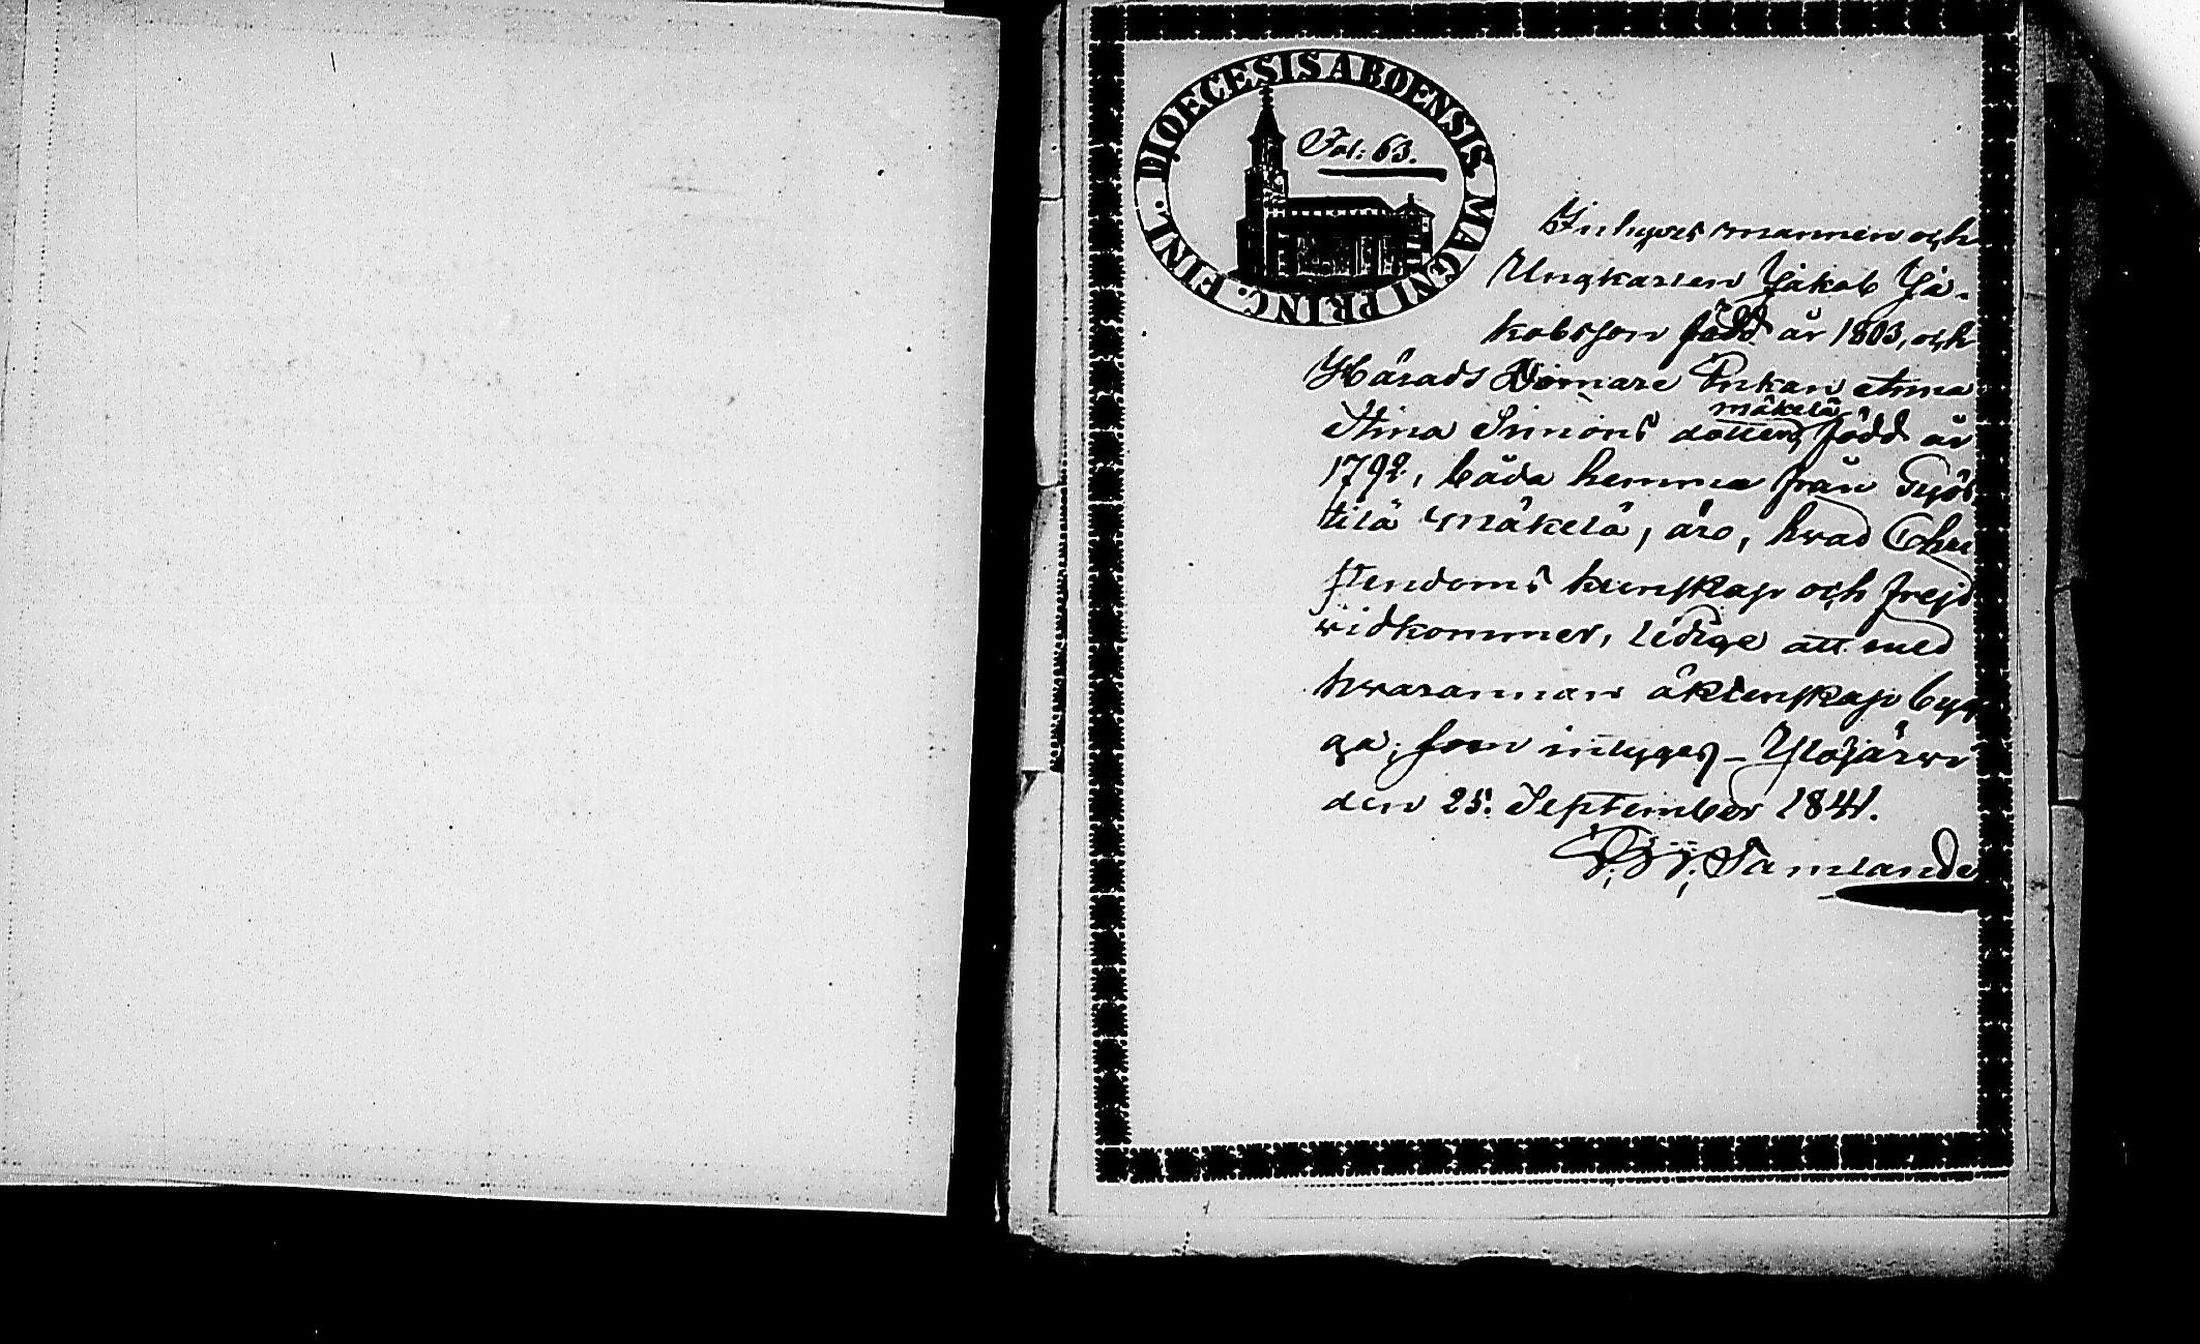 DIOECESIS ABOENSIS. MAGNI PRINC. FINL.
Fol: 63.
Inhyses mannen och
Ungkarlen Jakob Ja-
kobsson född år 1803, och
Härads Domare Enkan Anna
mäkelä
Stina Simons dotter, född år
1792, båda hemma från Työt
tilä Mäkelä, äro, hvad Chri
stendoms kunskap och frejd
widkommer, ledige att med
hvarannan äktenskap byg
ga; som intygas_ Ylöjärvi
den 25. September 1841.
Tamlande